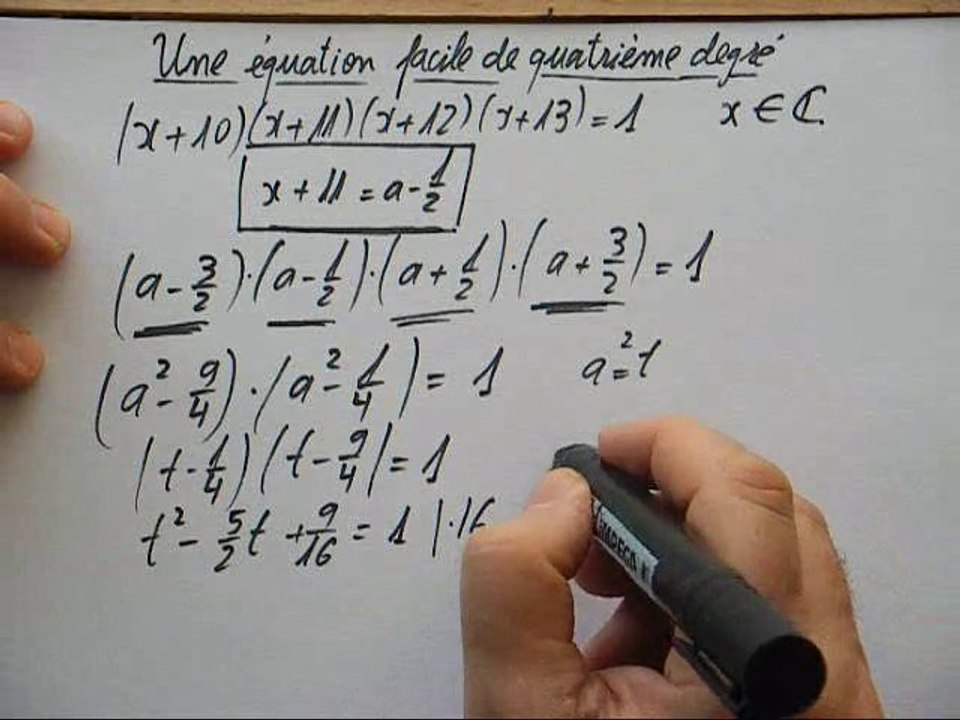 Une équation facile de quatrième degré
(x+10)(x+11)(x+12)(x+13)=1 x∈ℂ
x+11=a-1/2
(a-3/2)·(a-1/2)·(a+1/2)·(a+3/2)=1
(a²-9/4)·(a²-1/4)=1 a²=t
(t-1/4)(t-9/4)=1
t²-5/2t+9/16=1 |·16